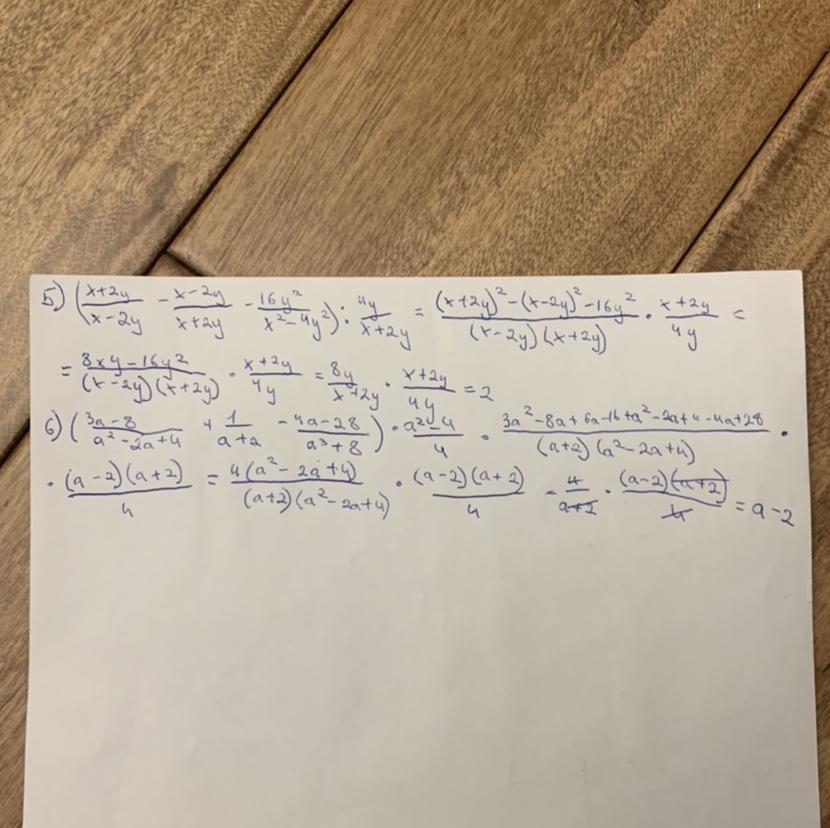 5) ((x+2y)/(x-2y) - (x-2y)/(x+2y) - 16y²/(x²-4y²)) : 4y/(x+2y) = ((x+2y)²-(x-2y)²-16y²)/((x-2y)(x+2y)) · (x+2y)/4y =
= (8xy-16y²)/((x-2y)(x+2y)) · (x+2y)/4y = 8y/(x+2y) · (x+2y)/4y = 2
6) ((3a-8)/(a²-2a+4) + 1/(a+2) - (4a-28)/(a³+8)) · (a²-4)/4 = (3a²-8a+6a-16+a²-2a+4-4a+28)/((a+2)(a²-2a+4)) ·
· ((a-2)(a+2))/4 = 4(a²-2a+4)/((a+2)(a²-2a+4)) · ((a-2)(a+2))/4 = 4/(a+2) · ((a-2)(a+2))/4 = a-2